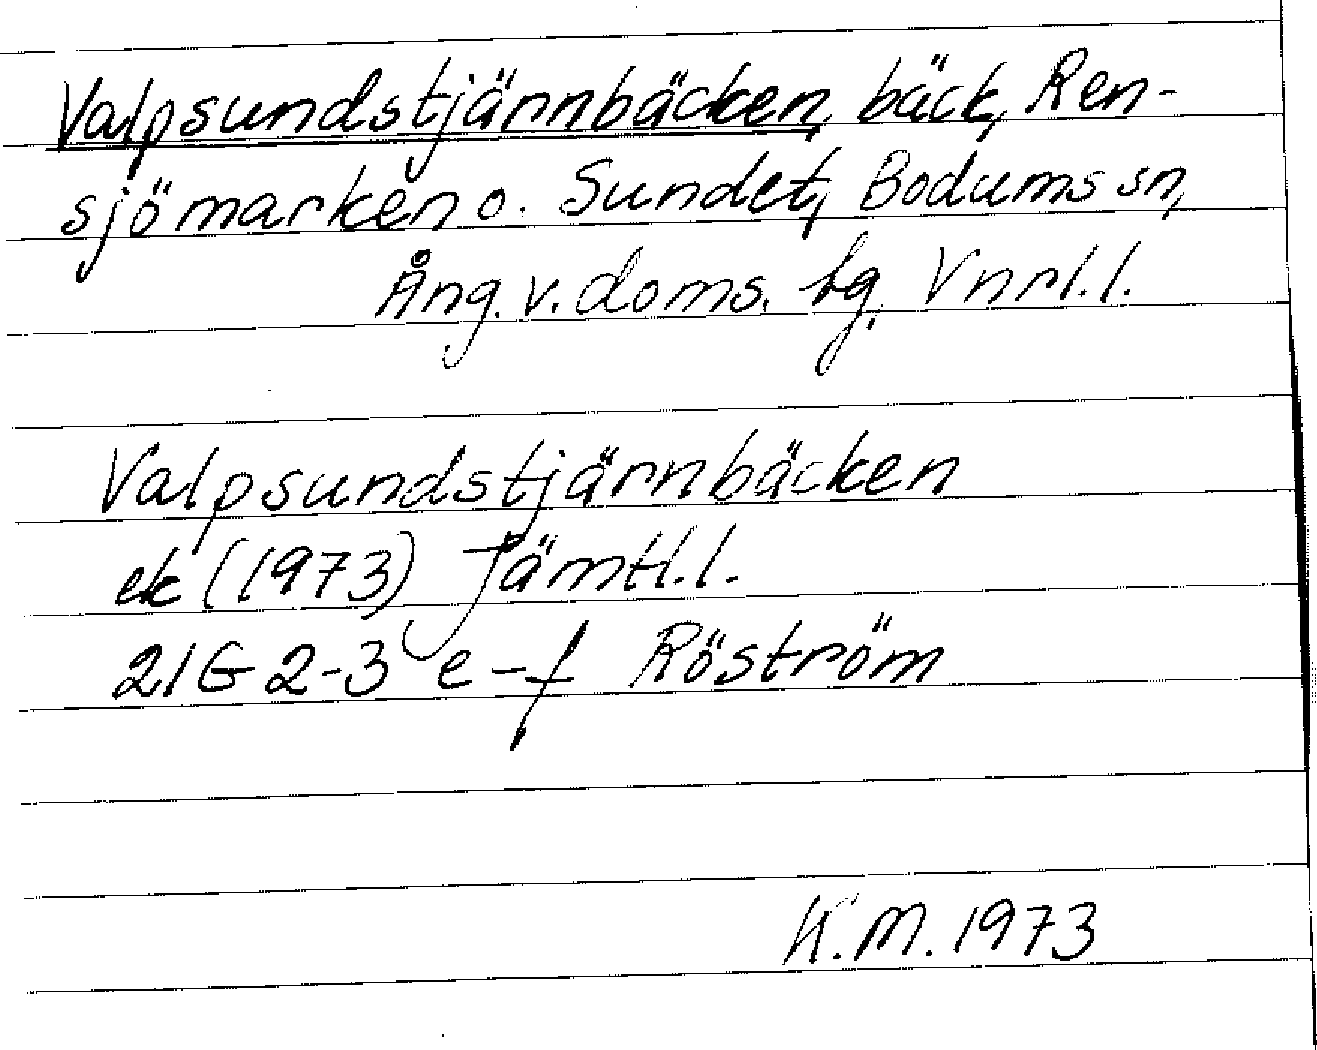 Valpsundstjärnbäcken, bäck, Ren-
sjömarken o. Sundet, Bodums sn,
Ång. v. doms. tg, Vnrl. l.
Valpsundstjärnbäcken
ek (1973) Jämtl. l.
21G 2-3 e-f Röström
K.M. 1973